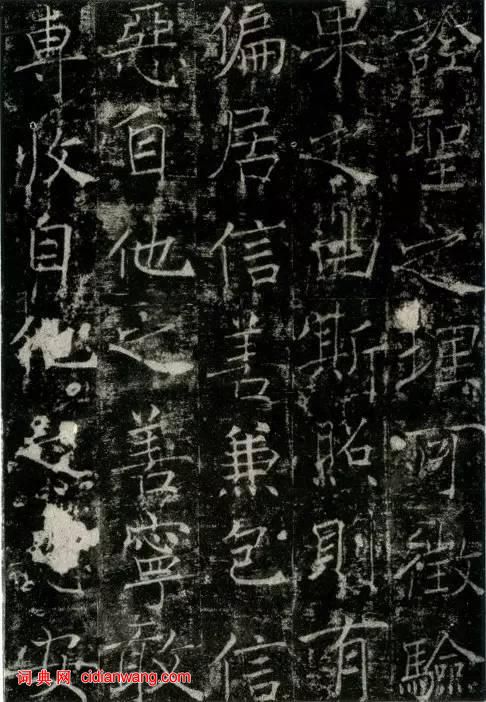 詮聖之理可徵驗
果之斯照則有
偏居信善兼包信
惡自他之善寧敢
專收自他
词典网 cidianwang.com